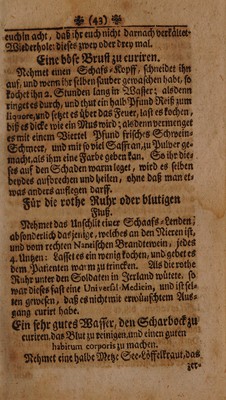 (43)
euch in acht, daß ihr euch nicht darnach verkältet.
Wiederhole dieses zwey oder drey mal.
Eine böse Brust zu curiren.
Nehmet einen Schafs-Kopff, schneidet ihn
auf, und wenn ihr selben sauber gewaschen habt, so
kochet ihn 2. Stunden lang in Wasser; als denn
ringet es durch, und thut ein halb Pfund Reiß zum
liquore, und setzet es über das Feuer, last es kochen,
biß es dicke wie ein Mus wird; als denn vermenget
es mit einem Viertel Pfund frisches Schwein-
Schmeer, und mit so viel Saffran, zu Pulver ge-
macht, als ihm eine Farbe geben kan. So ihr die-
ses auf den Schaden warm leget, wird es selben
beydes aufbrechen und heilen, ohne daß man et-
was anders auflegen darff.
Für die rothe Ruhr oder blutigen
Fluß.
Nehmet das Unschlit einer Schaafs-Lenden,
absonderlich dasjenige, welches an den Nieren ist,
und vom rechten Nantischen Brandtewein, jedes
4. Untzen: Lasset es ein wenig kochen, und gebet es
dem Patienten warm zu trincken. Als die rothe
Ruhr unter den Soldaten in Irrland wütete, so
war dieses fast eine Universal-Medicin, und ist sel-
ten gewesen, daß es nicht mit erwünschtem Aus-
gang curirt habe.
Ein sehr gutes Wasser, den Scharbock zu
curiren, das Blut zu reinigen, und einen guten
habitum corporis zu machen.
Nehmet eine halbe Metze See-Löffelkraut, das
zer-